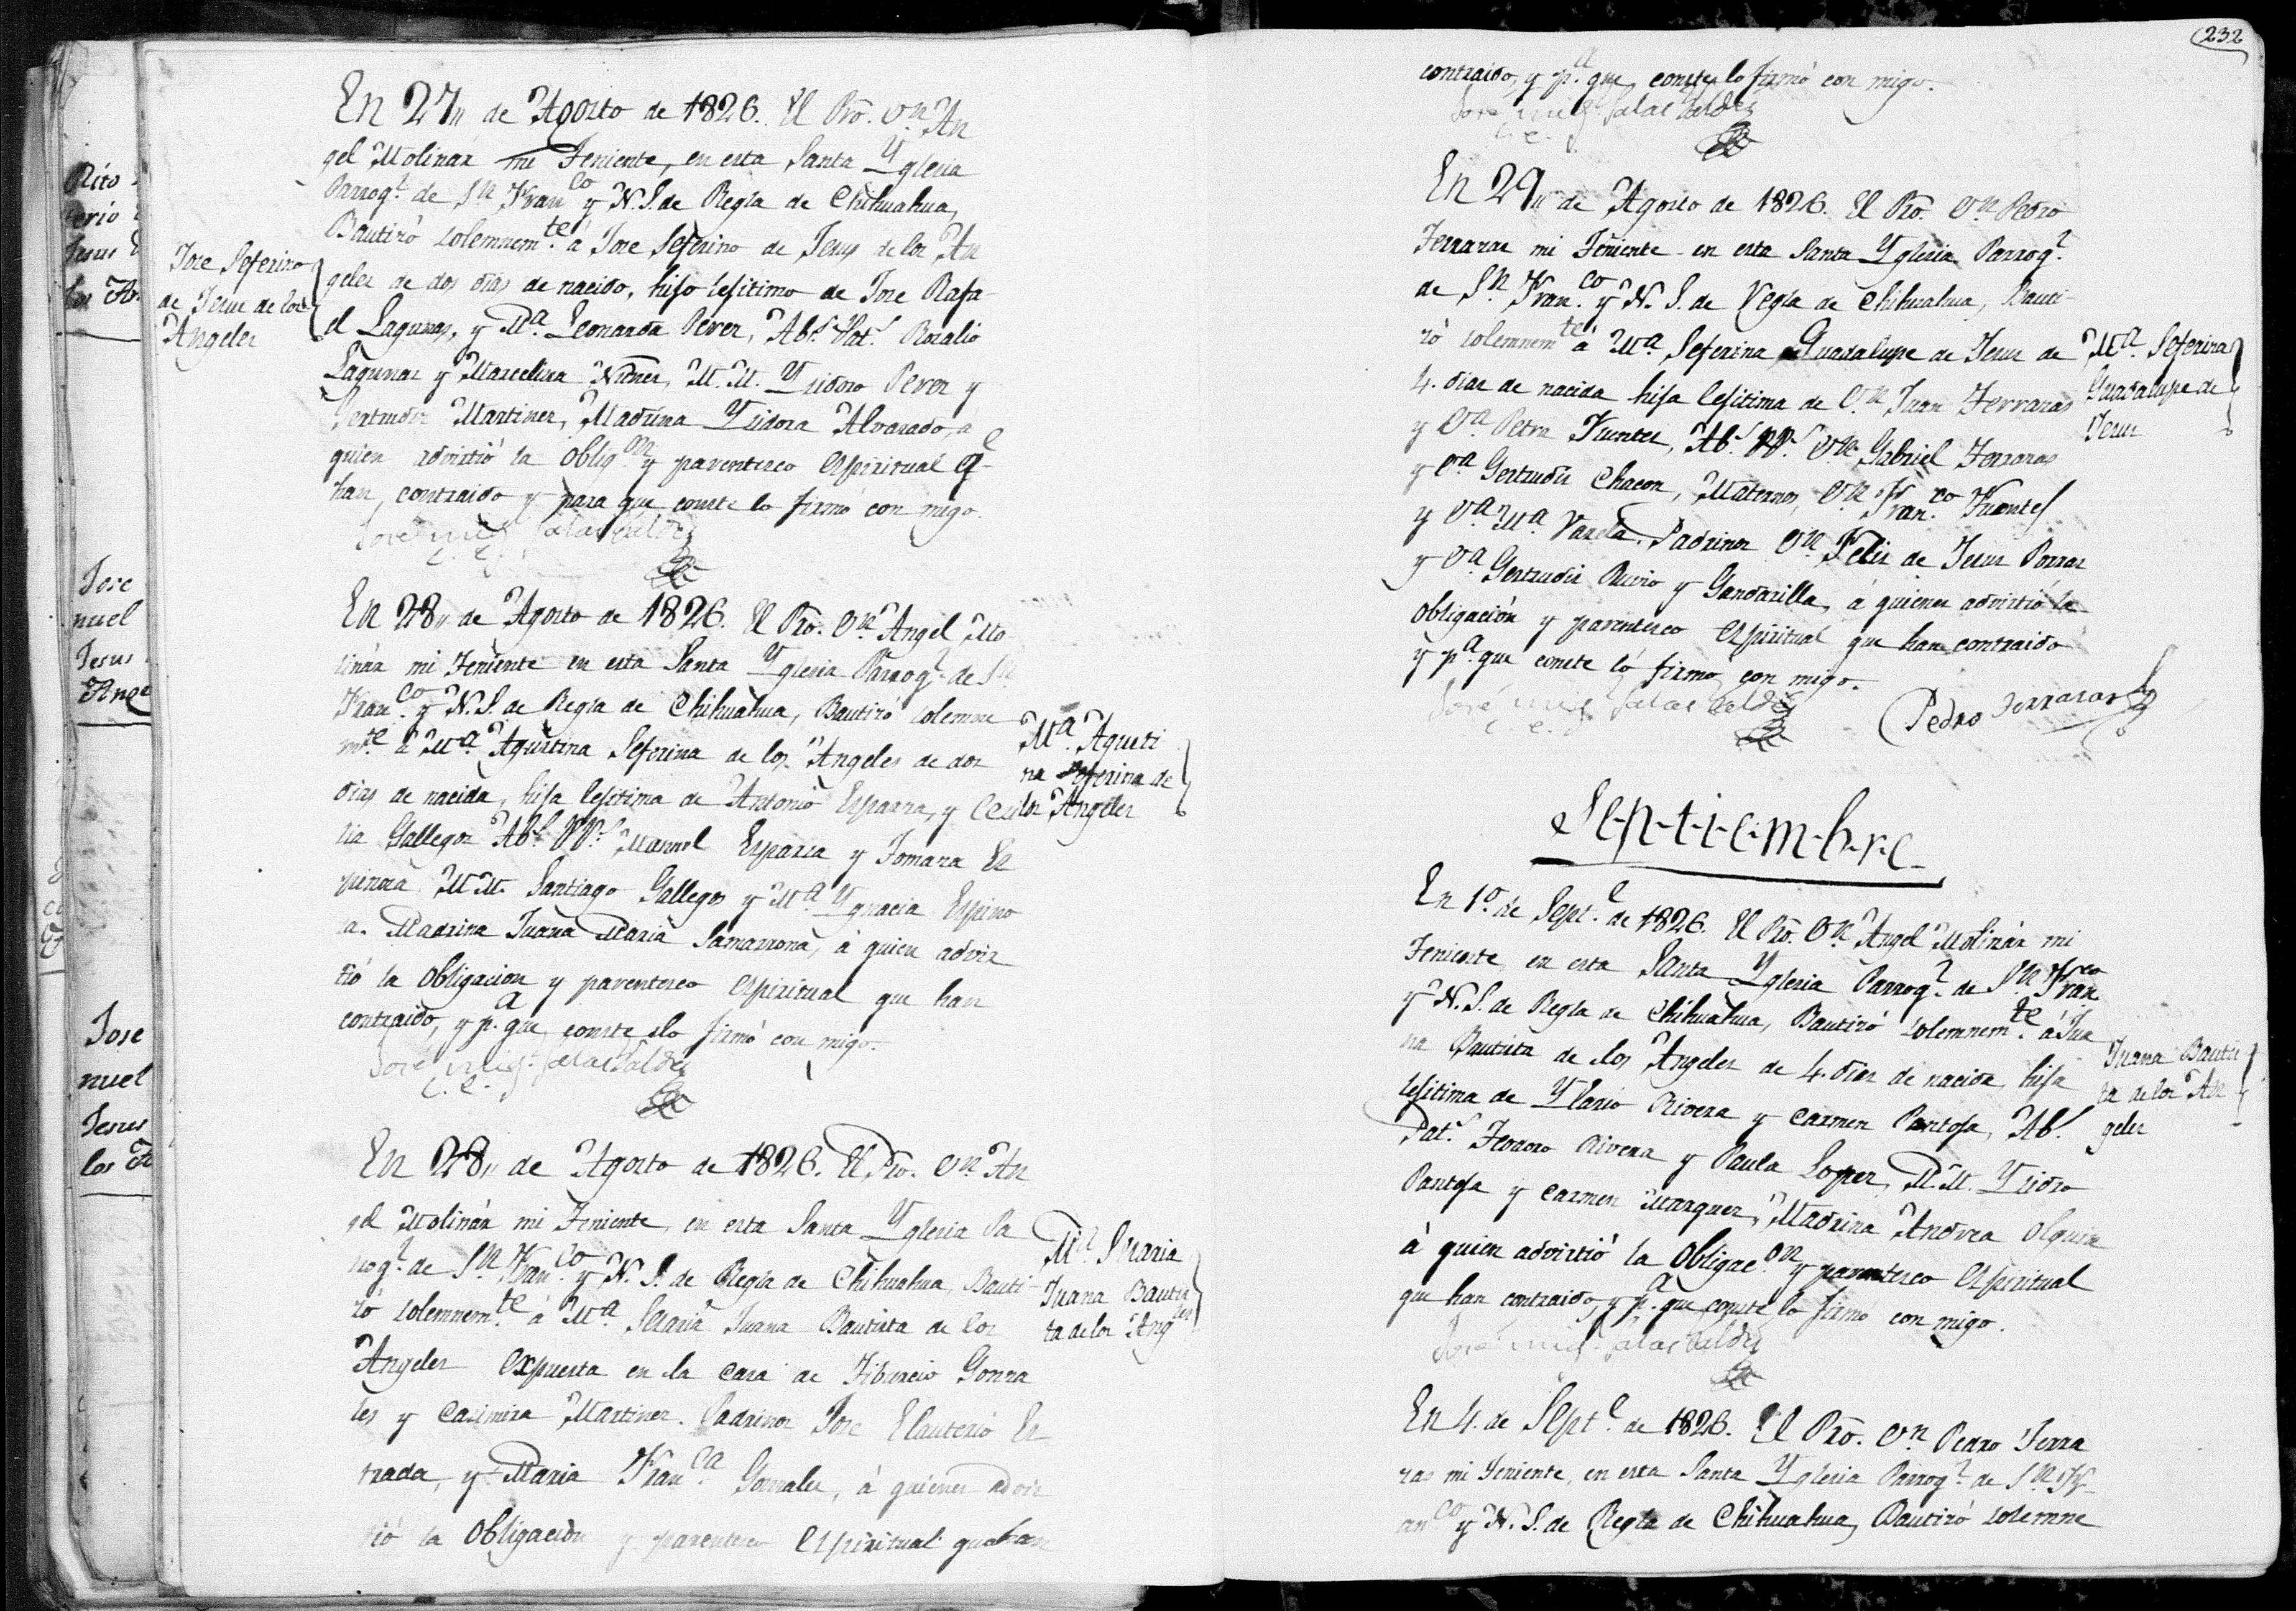 Rito
terio
Jesus
los An
Jose
nuel
Jesus
Ange
Jose
nuel
Jesus
los A
Jose Seferino
de Jesus de los
Angeles
En 27,, de Agosto de 1826. El Pro. Dn. An
gel Molinar mi Teniente, en esta Santa Yglesia
Parroql. de Sn. Franco. y N. S. de Regla de Chihuahua,
Bautizò solemnemte. à Jose Seferino de Jesus de los An
geles de dos dias de nacido, hijo lesitimo de Jose Rafa
el Lagunas, y Da. Leonarda Perez, Abs. Pats. Rosalio
Lagunas y Marcelina Nuñes, M. M. Ysidoro Perez y
Gertrudis Martines, Madrina Ysidora Alvarado, a
quien advirtió la Obligon. y parentesco espiritual qe.
han, contraido y para que conste lo firmó con migo.
José Migl. Salas Valdez
En 28,, de Agosto de 1826. El Pro. Dn. Angel Mo
linàr mi Teniente en esta Santa Yglesia Parroql. de Sn.
Franco. y N. S. de Regla de Chihuahua, Bautizó solemne
mte. à Ma. Agustina Seferina de los Angeles de dos
dias de nacida, hija lesitima de Antonio Esparza, y Cesi
lia Gallegos Abs. PPs. Manuel Esparza y Tomasa Es
pinosa M M. Santiago Gallegos y Ma. Ygnacia Espino
sa. Madrina Juana Maria Samarrona, à quien advir
tió la Obligacion y parentesco espiritual que han
contraido, y pa. que conste lo firmó con migo.
José Migl. Salas Valdez
Ma. Agusti
na Seferina de
los Angeles
En 28,, de Agosto de 1826. El Pro. Dn. An
gel Molinàr mi Teniente, en esta Santa Yglesia Pa
rroql. de Sn. Franco. y N. S. de Regla de Chihuahua, Bauti
zó solemnemte. à Ma. Juana Bautista de los
Angeles expuesta en la casa de Tiburcio Gonza
les y Casimira Martines. Padrinos Jose Elauterio Es
trada, y Maria Franca. Gonzales, à quienes advir
tió la Obligaciòn y parentesco espiritual que han
Juana Bautis
ta de los Angles
232
contraido, y pa. que conste lo firmó con migo.
José Migl. Salas Valdez
En 29,, de Agosto de 1826. El Pro. Dn. Pedro
Terrazas mi Teniente en esta Santa Yglesia Parroql.
de Sn. Franco. y N. S. de Regla de Chihuahua, Bauti
zò solemnemte. à Ma. Seferina Guadalupe de Jesus de
4. dias de nacida hija lesitima de Dn. Juan Terrazas
y Da. Petra Fuentes, Abs. PPs. Dn. Gabriel Terrazas
y Da. Gertrudis Chacon, Maternos, Dn. Franco. Fuentes
y Da. Ma. Varela. Padrinos Dn. Felis de Jesus Porras
y Da. Gertrudis Ruvio y Gandarilla, à quienes advirtió la
Obligación y parentesco espiritual que han contraido
y pa. que conste ló firmo con migo.
José Migl. Salas Valdez
Pedro Terrazas
Ma. Seferina
Guadalupe de
Jesus
Septiembre
En 1o. de Septe. de 1826. El Pro. Dn. Angel Molinàr mi
Teniente, en esta Santa Yglesia Parroql. de Sn. Franco
y N. S. de Regla de Chihuahua, Bautizó solemnemte. à Jua
na Bautista de los Angeles de 4. dias de nacida, hija
lesitima de Ylario Rivera y Carmen Pantoja, Abs.
Pats. Teodoro Rivera y Paula Lopez, M. M. Ysidro
Pantoja y Carmen Marquez, Madrina Andrea Olguin
à quien advirtió la Obligacon. y parentesco espiritual
que han contraido, y pa. que conste lo firmo con migo.
José Migl. Salas Valdez
Juana Bautis
ta de los An
geles
En 4. de Septe. de 1826. El Pro. Dn. Pedro Terra
zas mi Teniente, en esta Santa Yglesia Parroql. de Sn. Fr
anco. y N. S. de Regla de Chihuahua, Bautizó solemne